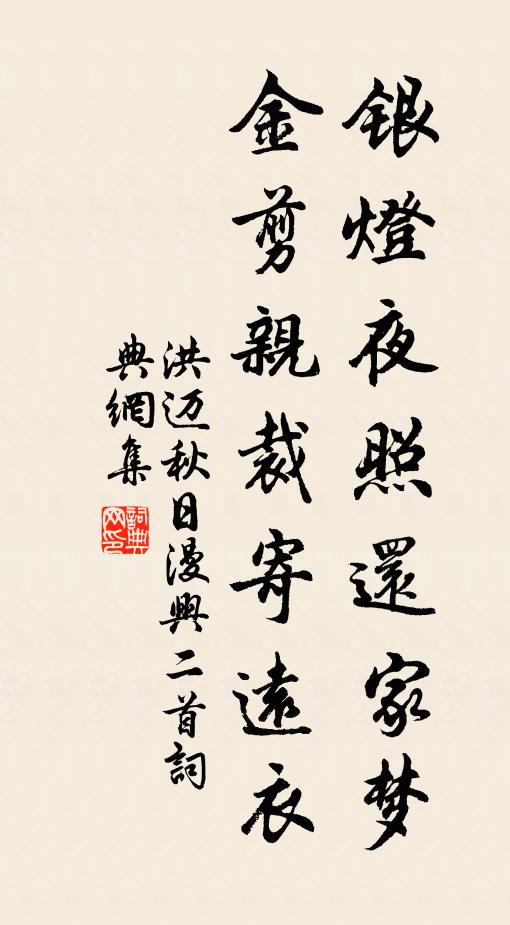 銀燈夜照還家梦
金剪親裁寄遠衣
洪迈秋日漫興二首詞
典網集
詞典
网印